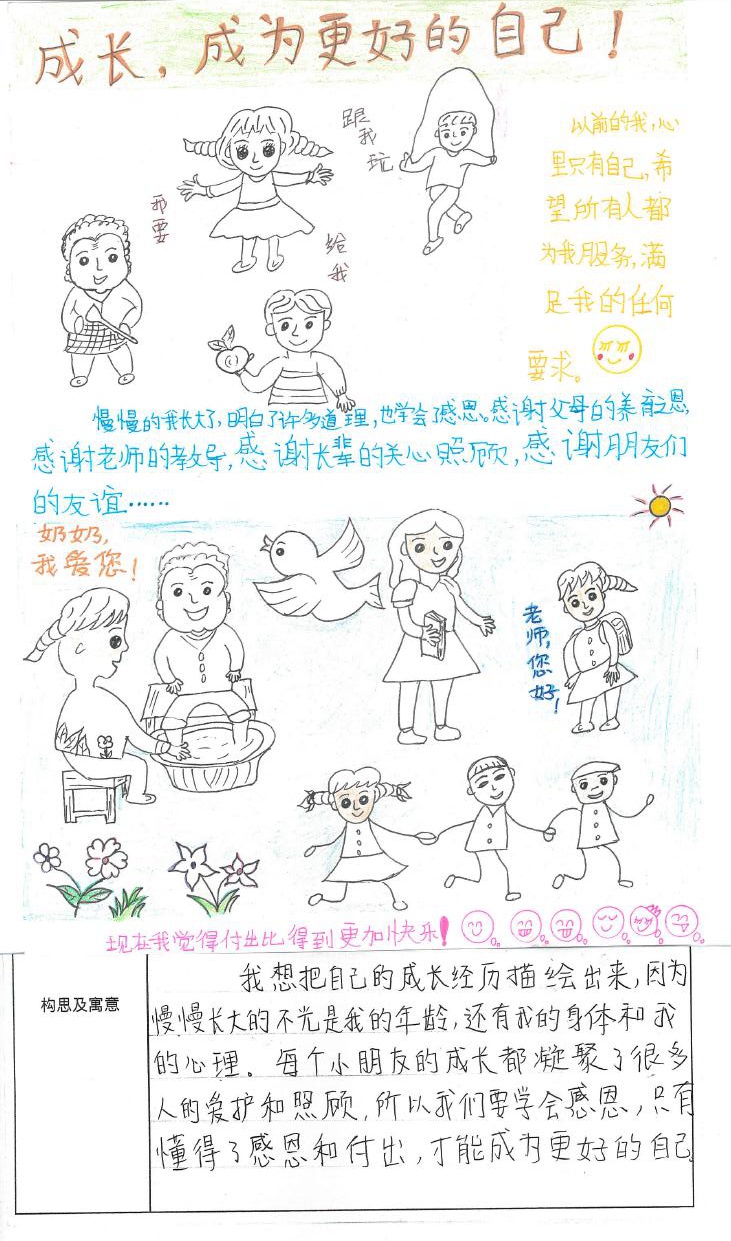 成长，成为更好的自己！
跟我玩
我要
给我
以前的我，心
里只有自己，希
望所有人都
为我服务，满
足我的任何
要求。
慢慢的我长大了，明白了许多道理，也学会了感恩。感谢父母的养育之恩，
感谢老师的教导，感谢长辈的关心照顾，感谢朋友们
的友谊……
奶奶，
我爱您！
老师，您好！
现在我觉得付出比得到更加快乐！
构思及寓意
我想把自己的成长经历描绘出来，因为
慢慢长大的不光是我的年龄，还有我的身体和我
的心理。每个小朋友的成长都凝聚了很多
人的爱护和照顾，所以我们要学会感恩，只有
懂得了感恩和付出，才能成为更好的自己。